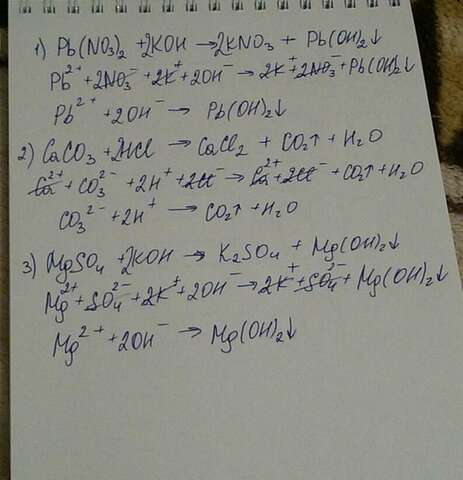 1) Pb(NO₃)₂ + 2KOH → 2KNO₃ + Pb(OH)₂↓
Pb²⁺ + 2NO₃⁻ + 2K⁺ + 2OH⁻ → 2K⁺ + 2NO₃⁻ + Pb(OH)₂↓
Pb²⁺ + 2OH⁻ → Pb(OH)₂↓
2) CaCO₃ + 2HCl → CaCl₂ + CO₂↑ + H₂O
Ca²⁺ + CO₃²⁻ + 2H⁺ + 2Cl⁻ → Ca²⁺ + 2Cl⁻ + CO₂↑ + H₂O
CO₃²⁻ + 2H⁺ → CO₂↑ + H₂O
3) MgSO₄ + 2KOH → K₂SO₄ + Mg(OH)₂↓
Mg²⁺ + SO₄²⁻ + 2K⁺ + 2OH⁻ → 2K⁺ + SO₄²⁻ + Mg(OH)₂↓
Mg²⁺ + 2OH⁻ → Mg(OH)₂↓